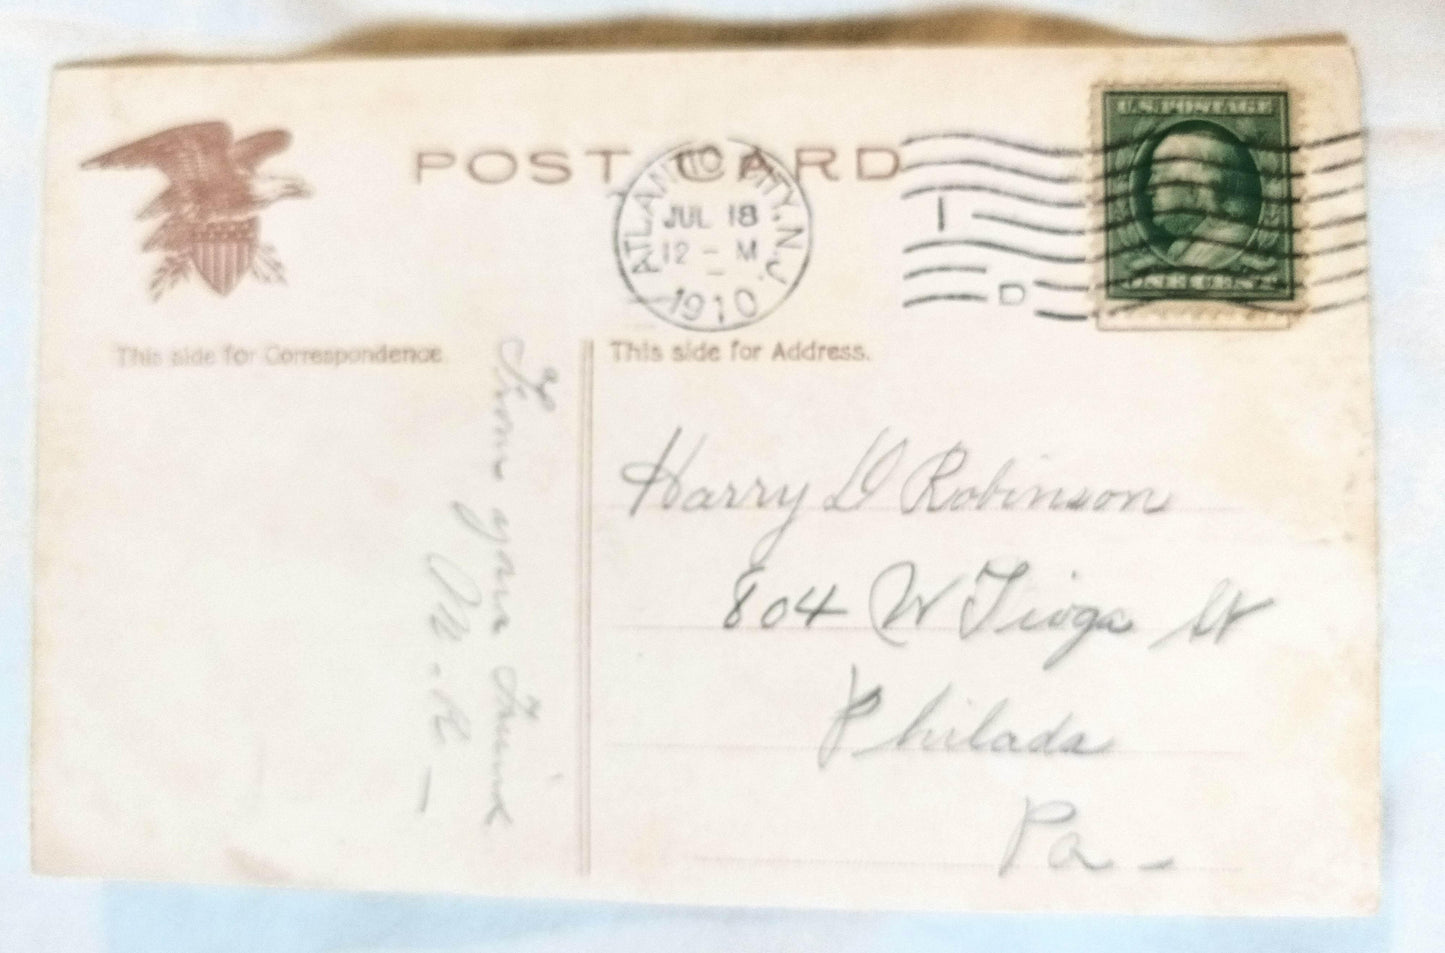 POST CARD
ATLANTIC CITY, N.J.
JUL 18
12 - M
1910
1
D
U.S. POSTAGE
ONE CENT
This side for Correspondence
This side for Address.
From your
M. R. -
Harry D Robinson
804 W Tioga St
Philada
Pa -